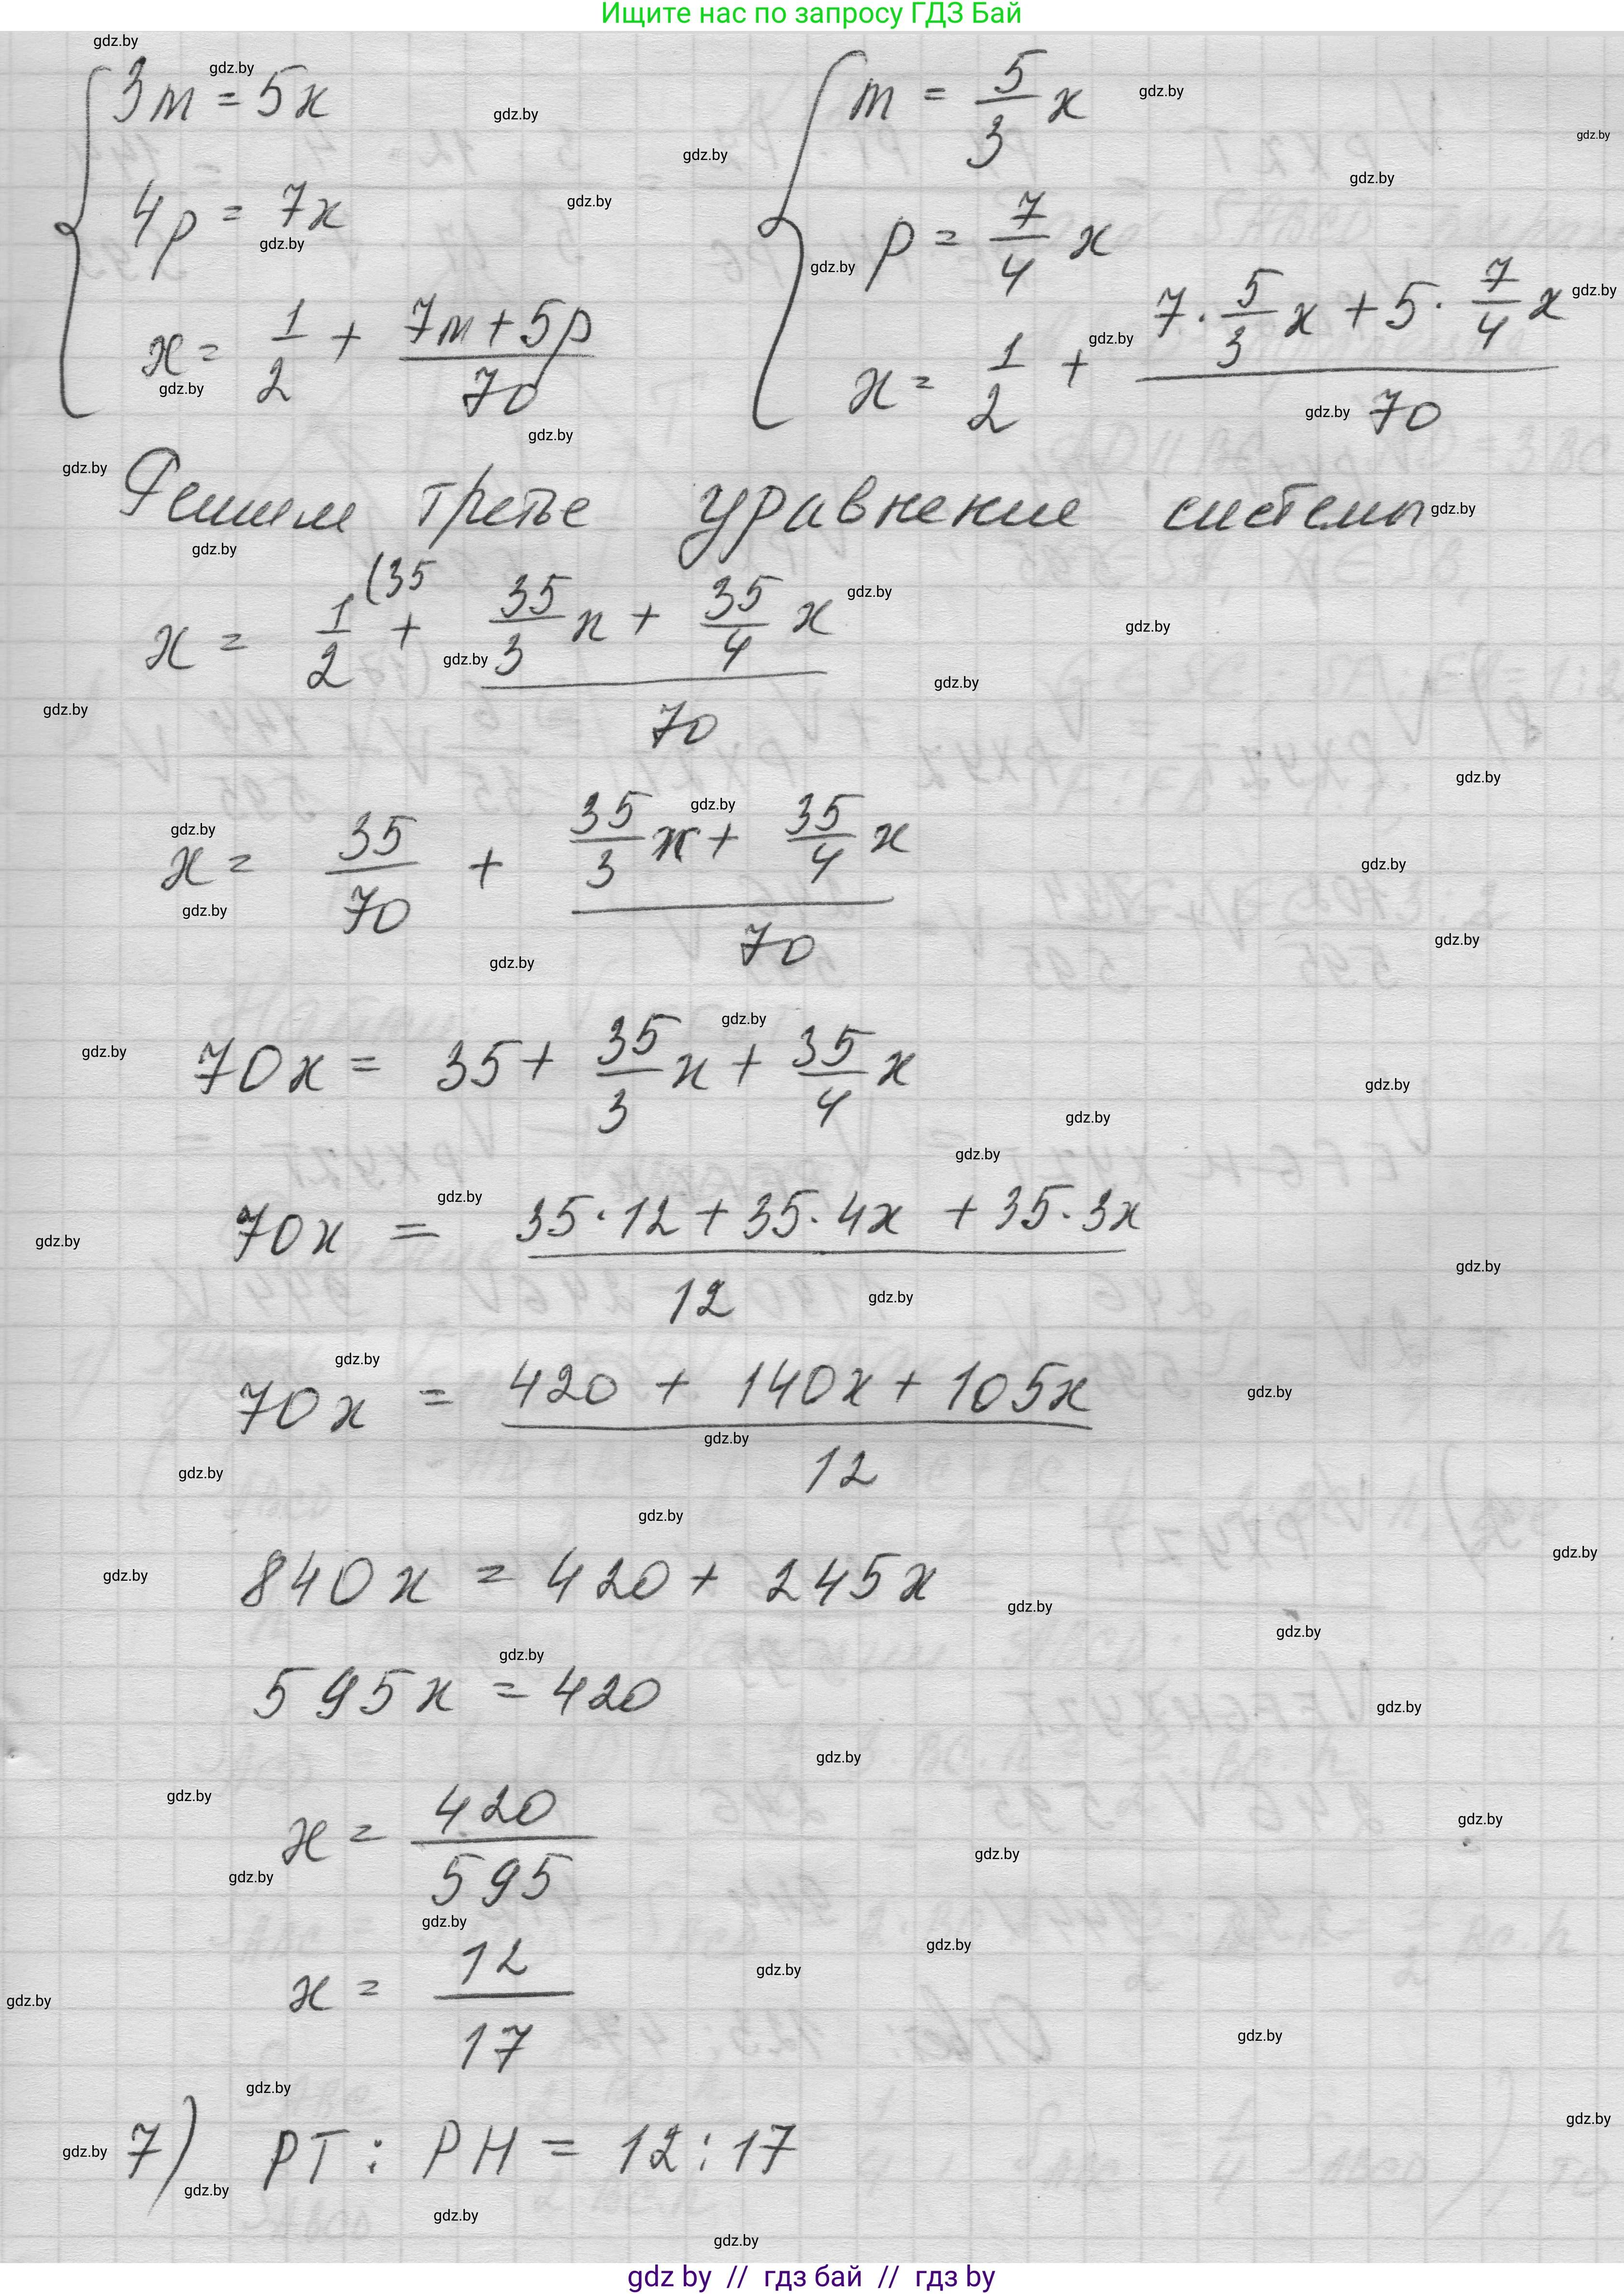 Ищите нас по запросу ГДЗ Бай
3m = 5x
4p = 7x
x = 1/2 + (7m + 5p)/70
m = 5/3 x
p = 7/4 x
x = 1/2 + (7 · 5/3 x + 5 · 7/4 x)/70
Решим третье уравнение системы
x = 1/2 (35 + (35/3 x + 35/4 x)/70
x = 35/70 + (35/3 x + 35/4 x)/70
70x = 35 + 35/3 x + 35/4 x
70x = (35 · 12 + 35 · 4x + 35 · 3x)/12
70x = (420 + 140x + 105x)/12
840x = 420 + 245x
595x = 420
x = 420/595
x = 12/17
7) PT : PH = 12 : 17
gdz by // гдз бай // гдз by